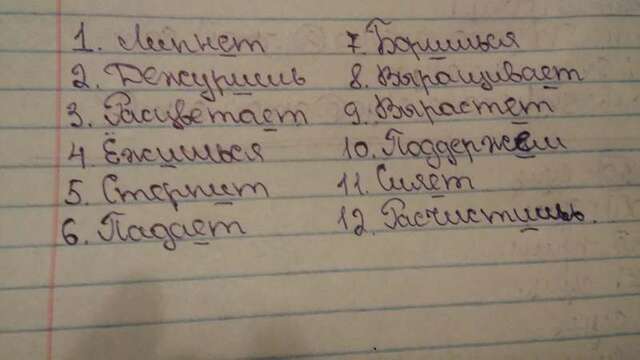 1. Липнет 7. Боришься
2. Дежуришь 8. Выращивает
3. Расцветает 9. Вырастет
4. Ёжишься 10. Поддержем
5. Стерпит 11. Сияет
6. Падает 12. Расчистишь.